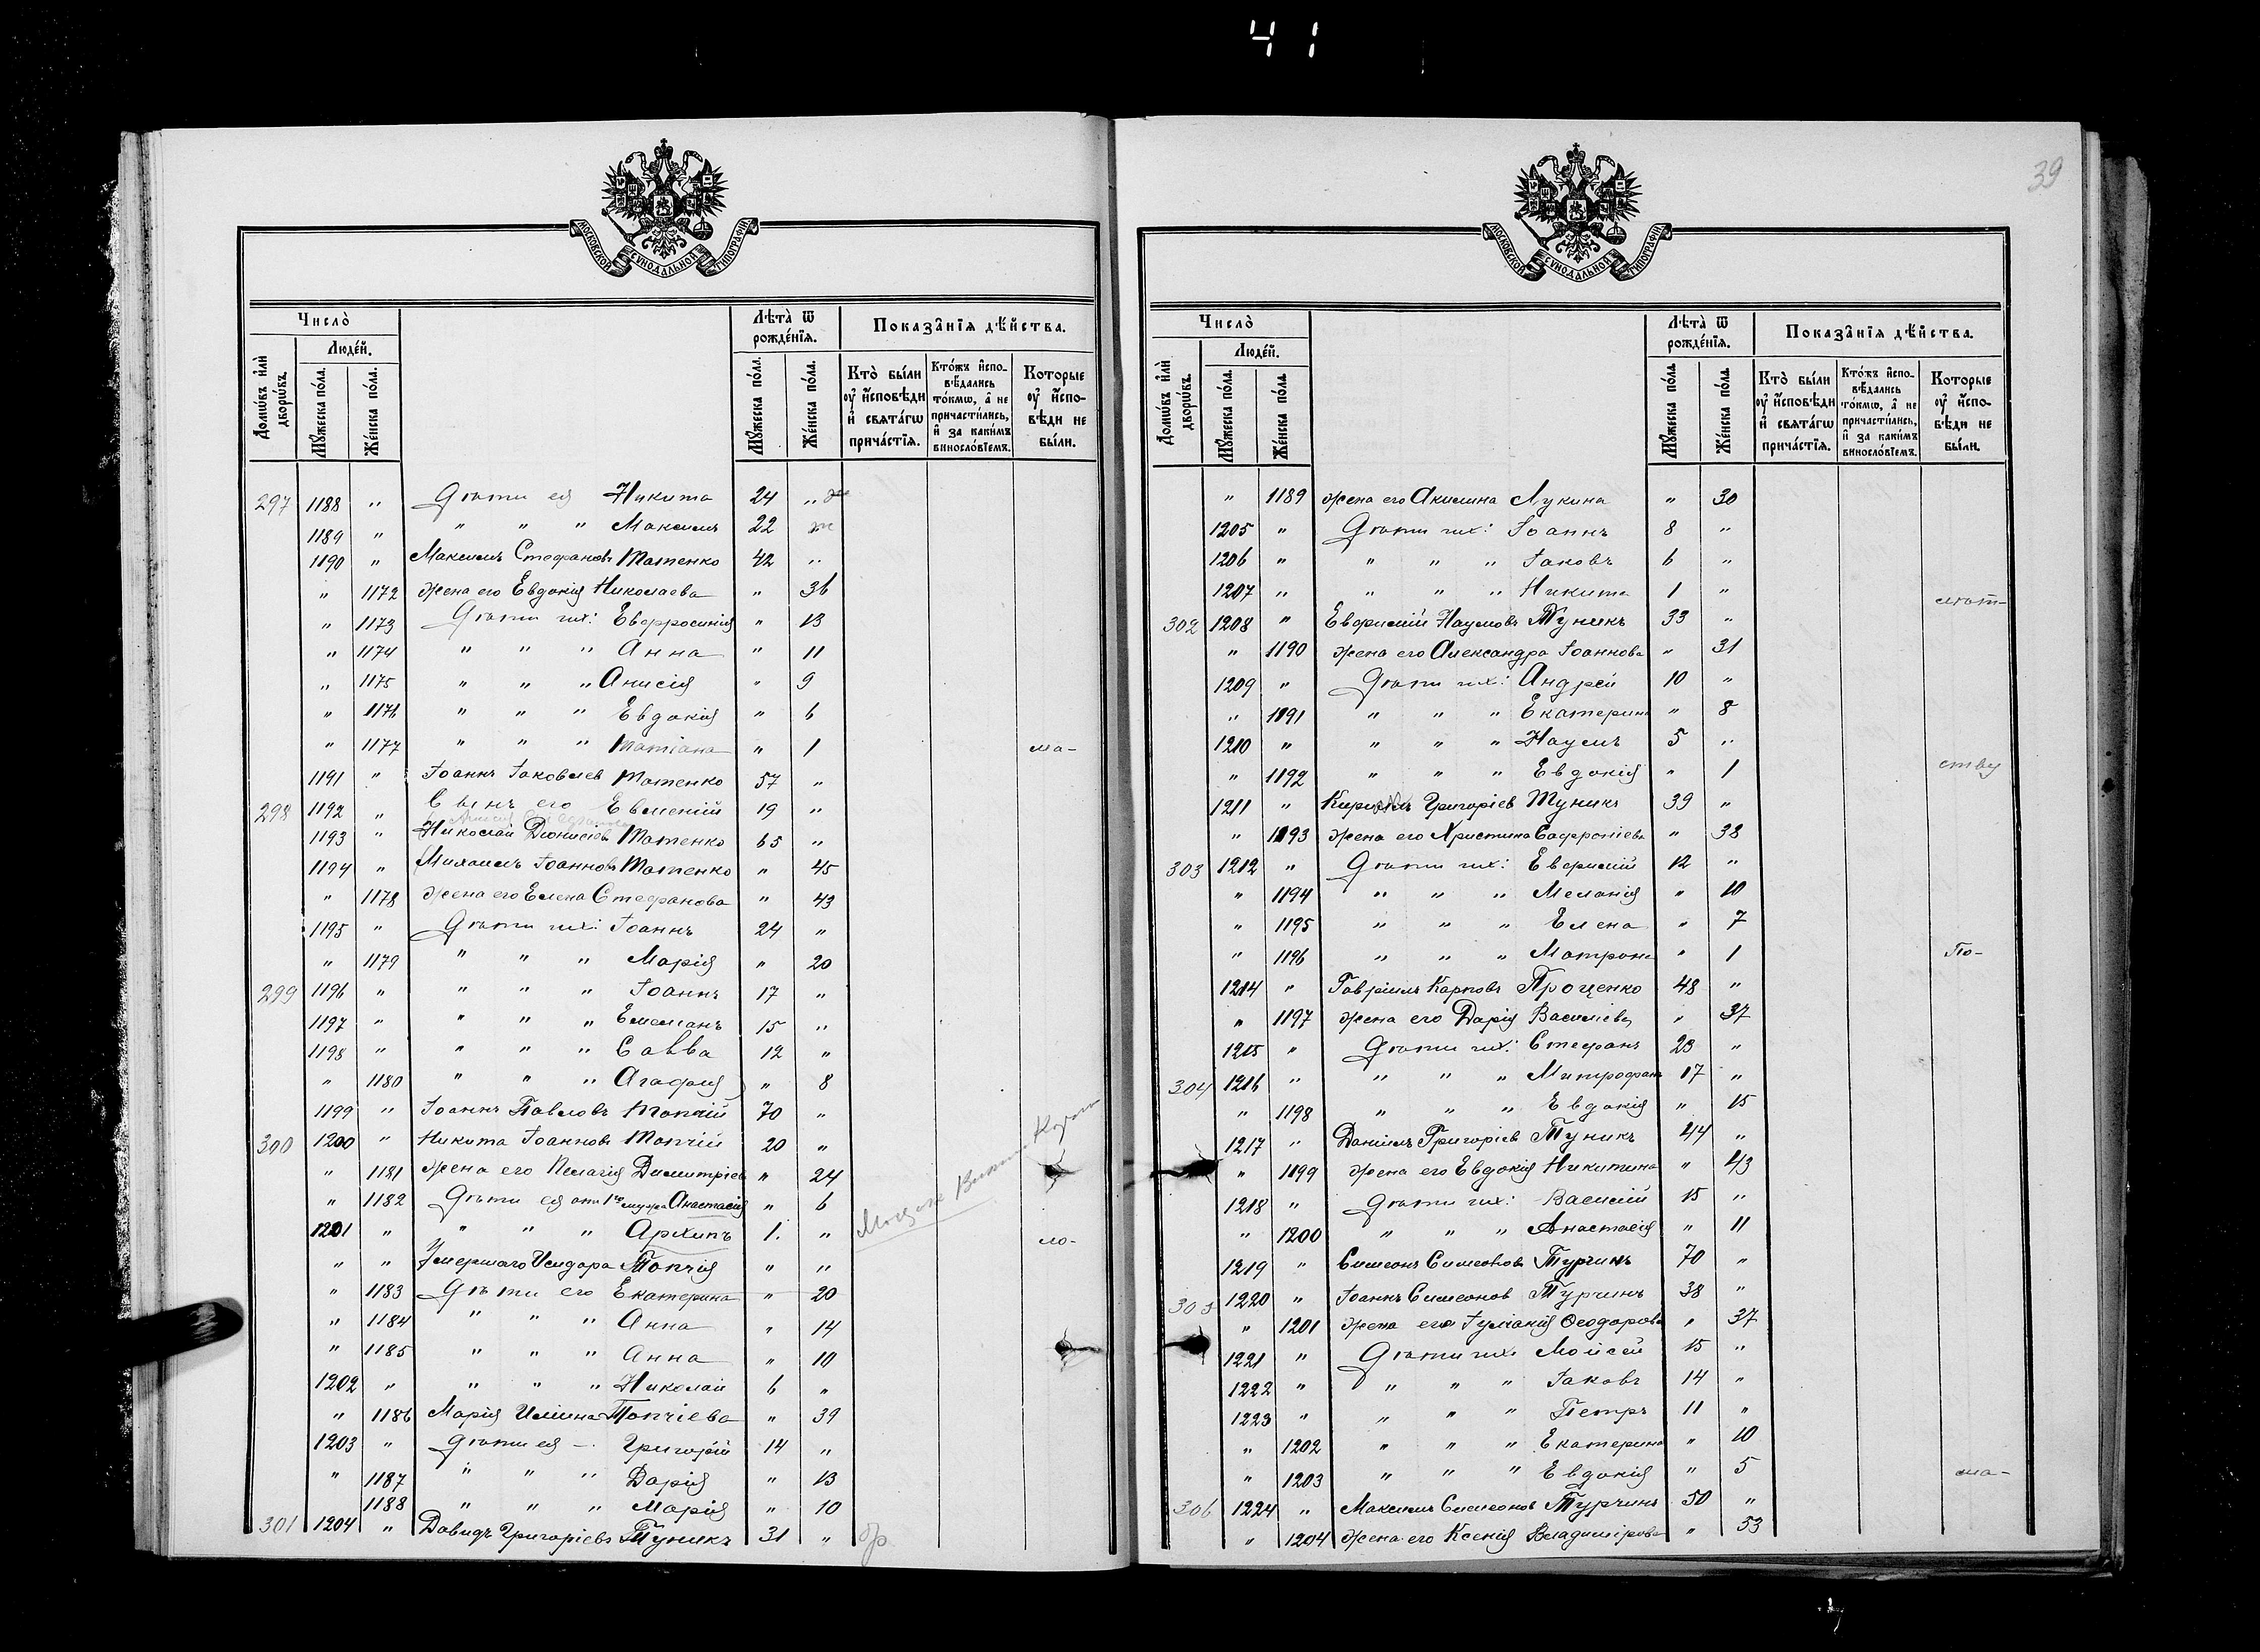 41
МОСКОВСКОЙ СѴНОДАЛЬНОЙ ТИПОГРАФІИ
Число̀
Люде́й.
Домѡ́въ и҆лѝ дворѡ́въ.
Мꙋ́жеска по́ла.
Же́нска по́ла.
Лѣ́та ѿ рожде́нїѧ.
Мꙋ́жеска по́ла.
Же́нска по́ла.
Показа̑нїѧ дѣ́йства.
Кто̀ бы́ли ᲂу҆ и҆сповѣ́ди и҆ свѧта́гѡ прича́стїѧ.
Кто́жъ и҆сповѣ́дались то́кмѡ, а҆ не причасти́лись, и҆ за каки́мъ виносло́вїемъ.
Которые ᲂу҆ и҆сповѣ́ди не бы́ли.
297 1188 " Дѣти ея Никита 24 "
1189 " " " " Максимъ 22
1190 " Максимъ Стефановъ Татенко 42 "
" 1172 жена его Евдокія Николаева " 36
" 1173 Дѣти ихъ: Евфросинія " 13
" 1174 " " " Анна " 11
" 1175 " " " Анисія " 9
" 1176 " " " Евдокія " 6
" 1177 " " " Татіана " 1 ма-
1191 " Іоаннъ Іаковлев Татенко 57 "
298 1192 " Сынъ его Евменій 19 "
1193 " Николай Діонисіевъ Татенко 65 "
1194 " Михаилъ Іоанновъ Татенко " 45
" 1178 жена его Елена Стефанова " 43
1195 " Дѣти ихъ: Іоаннъ 24 "
" 1179 " " " Марія " 20
299 1196 " " " " Іоаннъ 17 "
1197 " " " " Емеліанъ 15 "
1198 " " " " Савва 12 "
" 1180 " " " Агафія " 8
1199 " Іоаннъ Павловъ Топчій 70 "
300 1200 " Никита Іоанновъ Топчій 20 "
" 1181 жена его Пелагія Димитріев " 24
" 1182 Дѣти ея отъ 1го мужа Анастасія " 6
1201 " " " " Архипъ 1. " ло-
" " Умершаго Исидора Топчія " "
" 1183 Дѣти его Екатерина " 20
" 1184 " " " Анна " 14
" 1185 " " " Анна " 10
1202 " " " " Николай 6 "
" 1186 Марія Иліина Топчіева " 39
1203 " Дѣти ея -. Григорій 14 "
" 1187 " " " Дарія " 13
1188 " " " Марія " 10
301 1204 " Давидъ Григоріевъ Туникъ 31 "
39
МОСКОВСКОЙ СѴНОДАЛЬНОЙ ТИПОГРАФІИ
Число̀
Люде́й.
Домѡ́въ и҆лѝ дворѡ́въ.
Мꙋ́жеска по́ла.
Же́нска по́ла.
Лѣ́та ѿ рожде́нїѧ.
Мꙋ́жеска по́ла
Же́нска по́ла
Показа̑нїѧ дѣ́йства.
Кто̀ бы́ли ᲂу҆ и҆сповѣ́ди и҆ свѧта́гѡ прича́стїѧ.
Кто́жъ и҆сповѣ́дались то́кмѡ, а҆ не причасти́лись, и҆ за каки́мъ виносло́вїемъ.
Которые ᲂу҆ и҆сповѣ́ди не бы́ли.
" 1189 жена его Акилина Лукина " 30
1205 " Дѣти ихъ: Іоаннъ 8 "
1206 " " " " Іаковъ 6 "
1207 " " " " Никита 1 "
302 1208 " Евфимій Наумовъ Туникъ 33 "
" 1190 жена его Александра Іоаннова " 31
1209 " Дѣти ихъ: Андрей 10 "
" 1191 " " " Екатерина " 8
1210 " " " " Наумъ 5 "
" 1192 " " " Евдокія " 1 ству
1211 " Кириллъ Григоріев Туникъ 39 "
" 1193 жена его Христина Сафроніева " 38
303 1212 " Дѣти ихъ: Евфимій 12 "
" 1194 " " " Меланія " 10
" 1195 " " " Елена " 7
" 1196 " " " Матрона " 1 По-
1214 " Гавріилъ Карповъ Проценко 48 "
" 1197 жена его Дарія Василіева " 37
1215 " Дѣти ихъ: Стефанъ 23 "
304 1216 " " " " Митрофанъ 17 "
" 1198 " " " Евдокія " 15
1217 " Даніилъ Григоріев Туникъ 44 "
" 1199 жена его Евдокія Никитина " 43
1218 " Дѣти ихъ: Василій 15 "
" 1200 " " " Анастасія " 11
1219 " Симеонъ Симеоновъ Турчинъ 70 "
305 1220 " Іоаннъ Симеонов Турчинъ 38 "
" 1201 жена его Іуліанія Ѳеодорова " 37
1221 " Дѣти ихъ Мойсей 15 "
1222 " " " " Іаковъ 14 "
1223 " " " " Петръ 11 "
" 1202 " " " Екатерина " 10
" 1203 " " " Евдокія " 5 ма-
306 1224 " Максимъ Симеонов Турчинъ 50 "
" 1204 жена его Ксенія Владимірова " 53